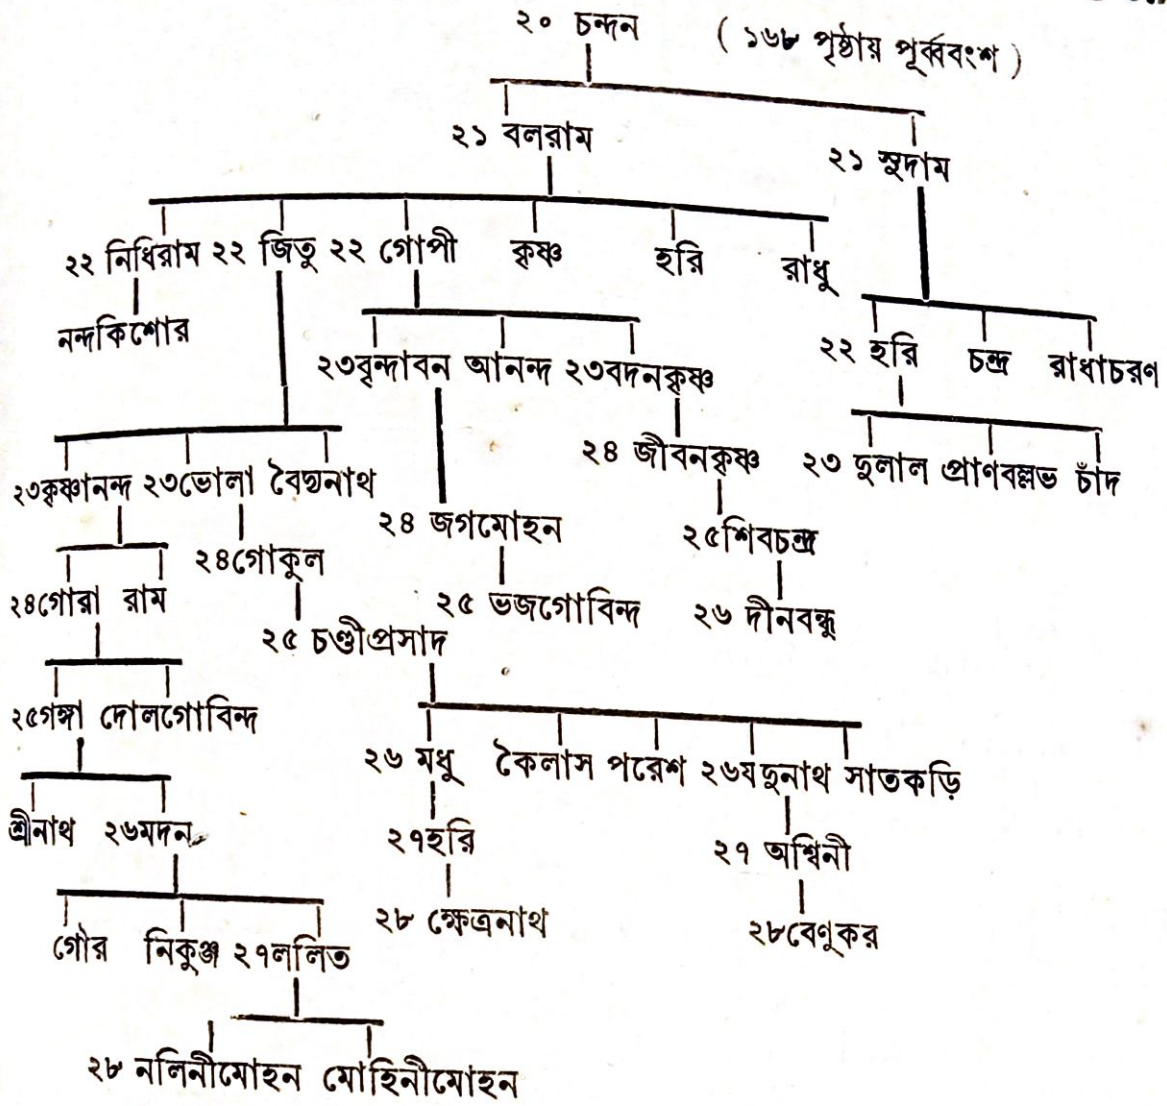 ২০ চন্দন ( ১৬৮ পৃষ্ঠায় পূর্ব্ববংশ )
২১ বলরাম ২১ সুদাম
২২ নিধিরাম ২২ জিতু ২২ গোপী কৃষ্ণ হরি রাধু
নন্দকিশোর
২২ হরি চন্দ্র রাধাচরণ
২৩বৃন্দাবন আনন্দ ২৩বদনকৃষ্ণ
২৪ জীবনকৃষ্ণ ২৩ দুলাল প্রাণবল্লভ চাঁদ
২৩কৃষ্ণানন্দ ২৩ভোলা বৈদ্যনাথ
২৪ জগমোহন ২৫শিবচন্দ্র
২৪গোকুল
২৪গোরা রাম ২৫ ভজগোবিন্দ ২৬ দীনবন্ধু
২৫ চণ্ডীপ্রসাদ
২৫গঙ্গা দোলগোবিন্দ
২৬ মধু কৈলাস পরেশ ২৬যদুনাথ সাতকড়ি
শ্রীনাথ ২৬মদন
২৭হরি ২৭ অশ্বিনী
২৮ ক্ষেত্রনাথ ২৮বেণুকর
গৌর নিকুঞ্জ ২৭ললিত
২৮ নলিনীমোহন মোহিনীমোহন